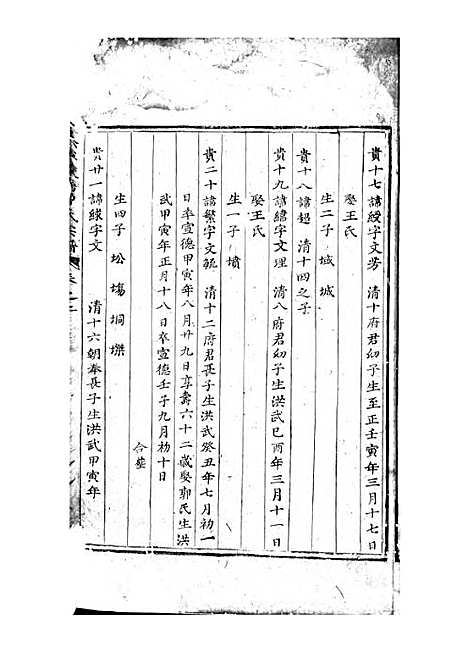 貴十七諱綬字文芳　清十府君幼子生至正壬寅年三月十七日
娶王氏
生二子 城 城
貴十八諱超　清十四之子
貴十九諱繡字文理　清八府君幼子生洪武己酉年三月十一日
娶王氏
生一子 墳
貴二十諱繁字文　清十二府君長子生洪武癸丑年七月初一
日卒宣德甲寅年八月廿九日享壽六十二歲娶郭氏生洪
武甲寅年正月十八日卒宣德壬子九月初十日
合葬
生四子 松 塲 垌 墚
貴廿一諱綵字文　清十六朝奉長子生洪武甲寅年